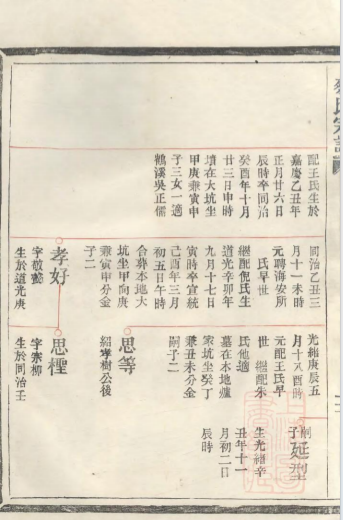 氏宗譜
配王氏生於
嘉慶乙丑年
正月廿六日
辰時卒同治
癸酉年十月
廿三日申時
墳在大坑坐
甲庚兼寅申
子三女一適
鶴溪吳正儒
同治乙丑三
月十一未時
元聘海安所
氏早世
繼配倪氏生
道光辛卯年
九月十七日
寅時卒宣統
己酉年三月
初五日午時
合葬本地大
坑坐甲向庚
兼寅申分金
子二
孝好
字敬藝
生於道光庚
光緒庚辰五
月十八酉時
元配王氏早
世 繼配朱
氏他適
墓在本地爐
家坑坐癸丁
兼丑未分金
嗣子二
思等
紹孝樹公後
思
字崇柳
生於同治壬
嗣子 延型
生光緒辛
丑年十一
月初二日
辰時